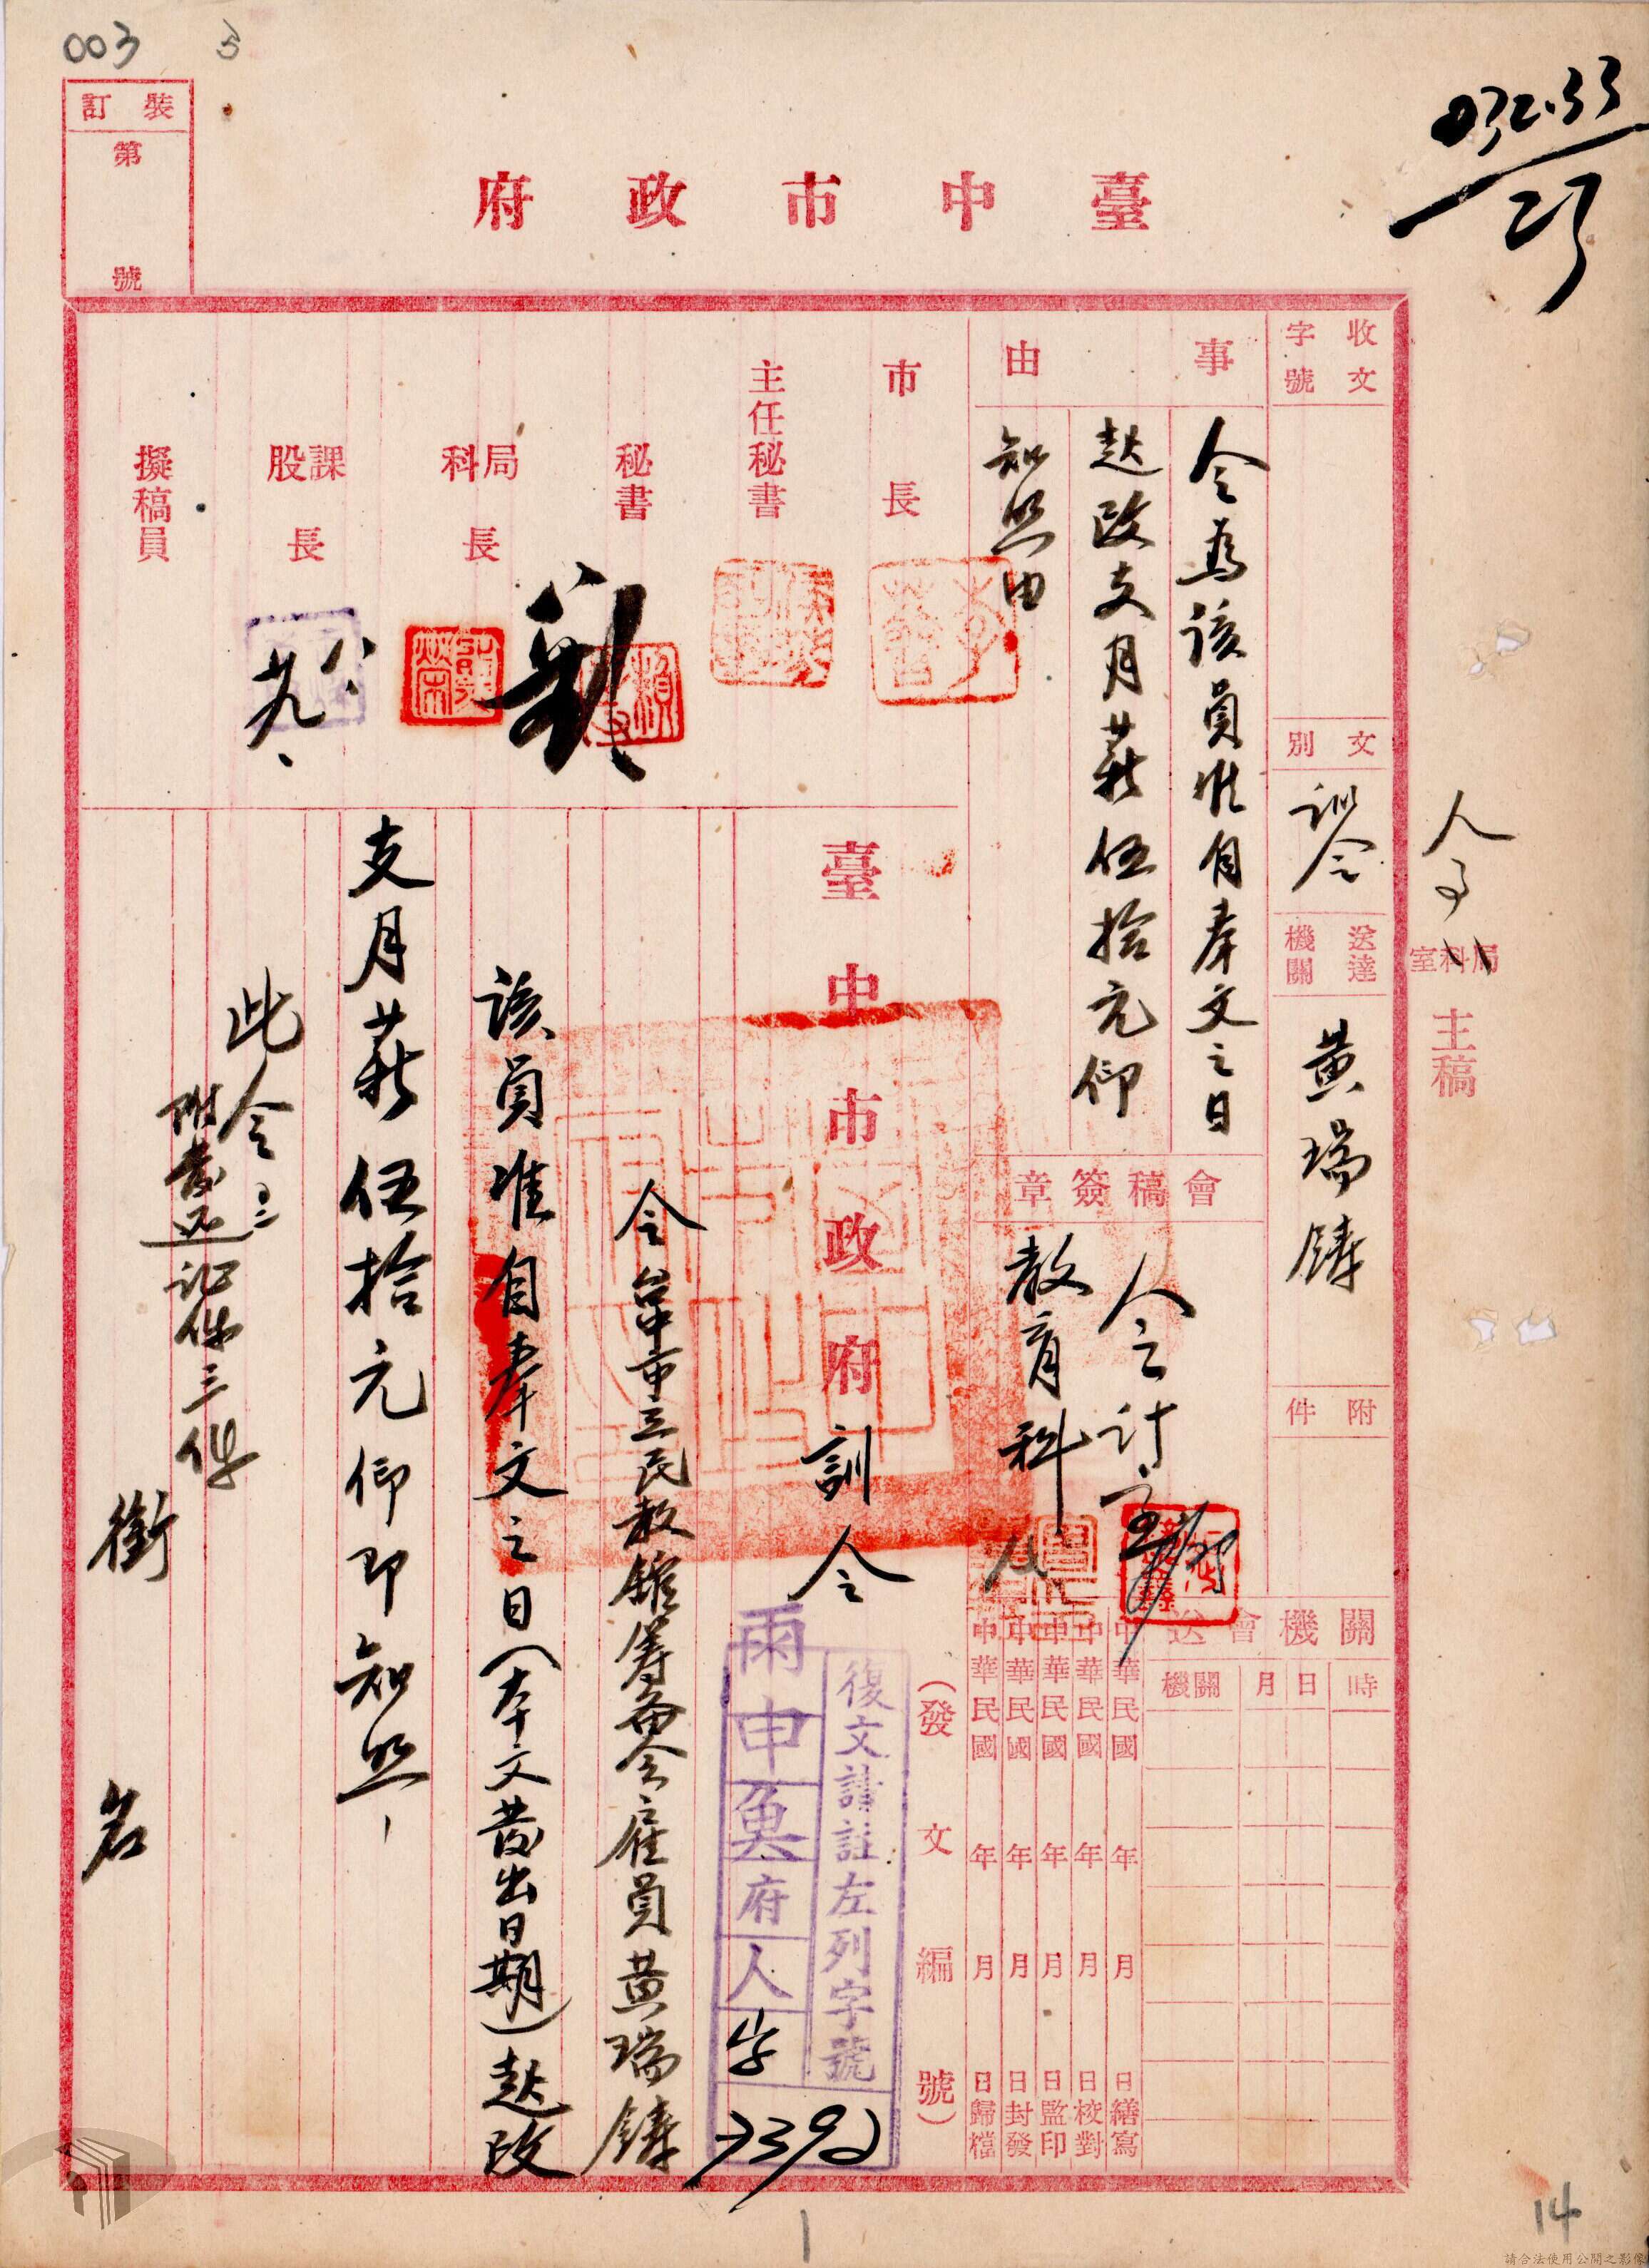 003 5
032.33
27
裝訂
第 號
臺中市政府
人事
局科室
主稿
收文字號
文別
訓令
送達機關
黃瑞鑄
附件
事由
令為該員准自奉文之日
起改支月薪伍拾元仰
知照由
會稿簽章
會計室
教育科
市長
主任秘書
秘書
局科長
課股長
擬稿員
關機會送
時 日 月 機關
中華民國 年 月 日繕寫
中華民國 年 月 日校對
中華民國 年 月 日監印
中華民國 年 月 日封發
中華民國 年 月 日歸檔
(發文編號)
復文請註左列字號
府人字
7392
臺中市政府訓令
令台中市立民教館籌备会雇員黃瑞鑄
該員准自奉文之日(本文發出日期)起改
支月薪伍拾元仰即知照、
此令
附發还記件三件
銜名
1
14
請合法使用公開之影像